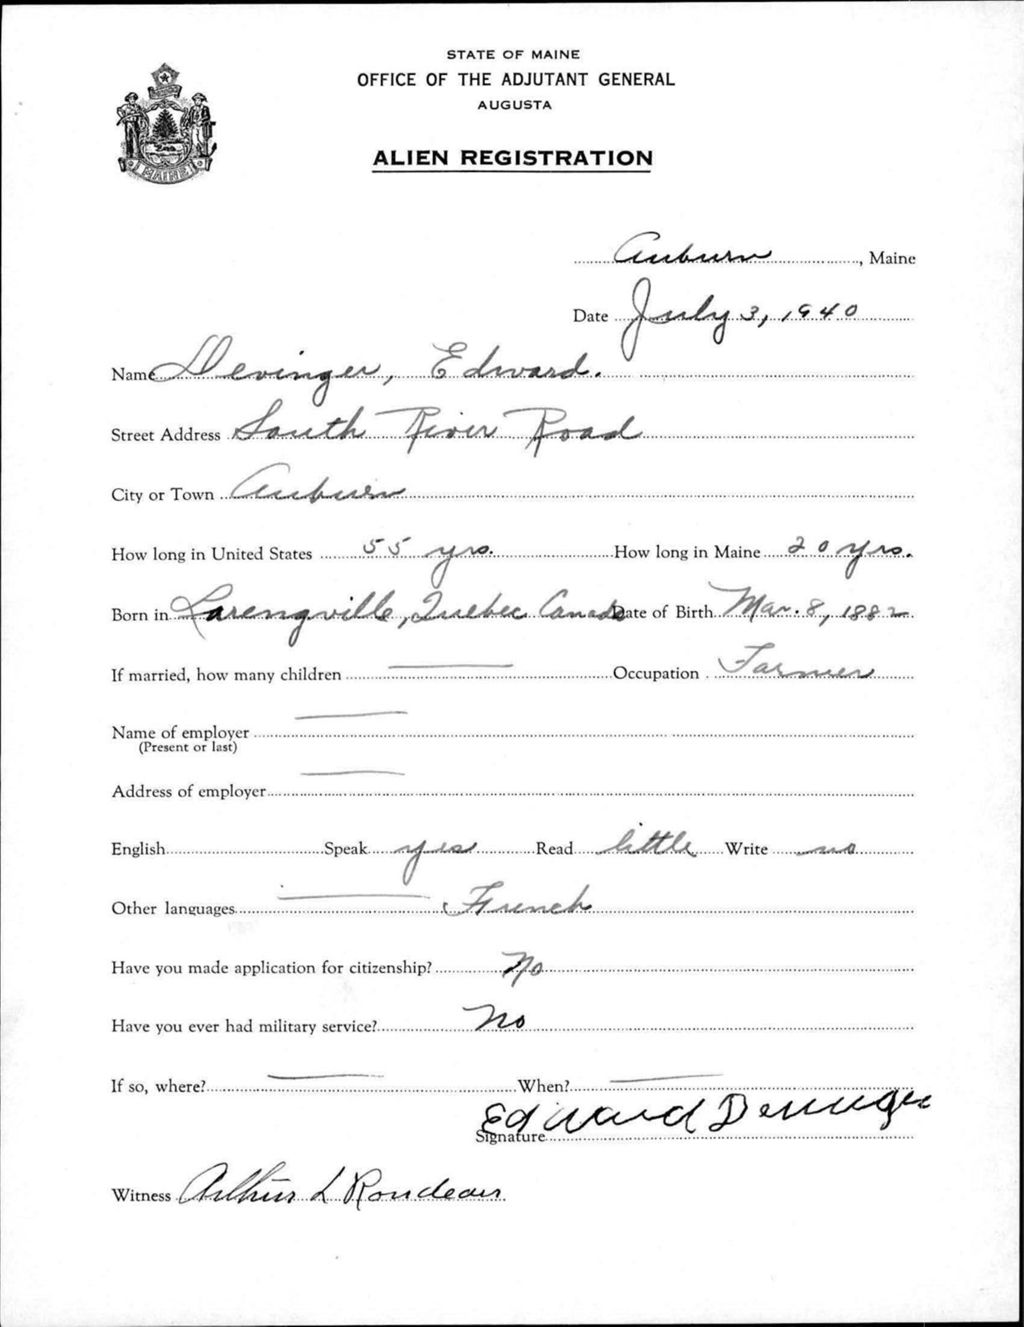 STATE OF MAINE
OFFICE OF THE ADJUTANT GENERAL
AUGUSTA
ALIEN REGISTRATION
MAINE
Auburn, Maine
Date July 3, 1940
Name Devinger, Edward.
Street Address South River Road
City or Town Auburn
How long in United States 55 yrs. How long in Maine 20 yrs.
Born in Larengville, Quebec Canada Date of Birth Mar. 8, 1882
If married, how many children Occupation Farmer
Name of employer
(Present or last)
Address of employer
English Speak yes Read little Write no
Other languages French
Have you made application for citizenship? No
Have you ever had military service? No
If so, where? When?
Signature Edward Devinger
Witness Arthur L Rondeau